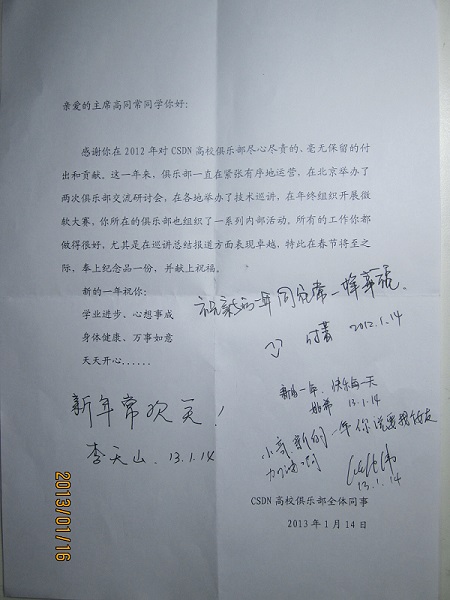 亲爱的主席高同常同学你好：
感谢你在 2012 年对 CSDN 高校俱乐部尽心尽责的、毫无保留的付
出和贡献。这一年来，俱乐部一直在紧张有序地运营，在北京举办了
两次俱乐部交流研讨会，在各地举办了技术巡讲，在年终组织开展微
软大赛，你所在的俱乐部也组织了一系列内部活动。所有的工作你都
做得很好，尤其是在巡讲总结报道方面表现卓越，特此在春节将至之
际，奉上纪念品一份，并献上祝福。
新的一年祝你：
学业进步、心想事成
身体健康、万事如意
天天开心......
祝新的一年同常
2012.1.14
新的一年，快乐每一天
13.1.14
新年常欢笑！
李天山. 13.1.14
小高 新的一年你说要找女友
加油啊
13.1.14
CSDN 高校俱乐部全体同事
2013 年 1 月 14 日
2013/01/16